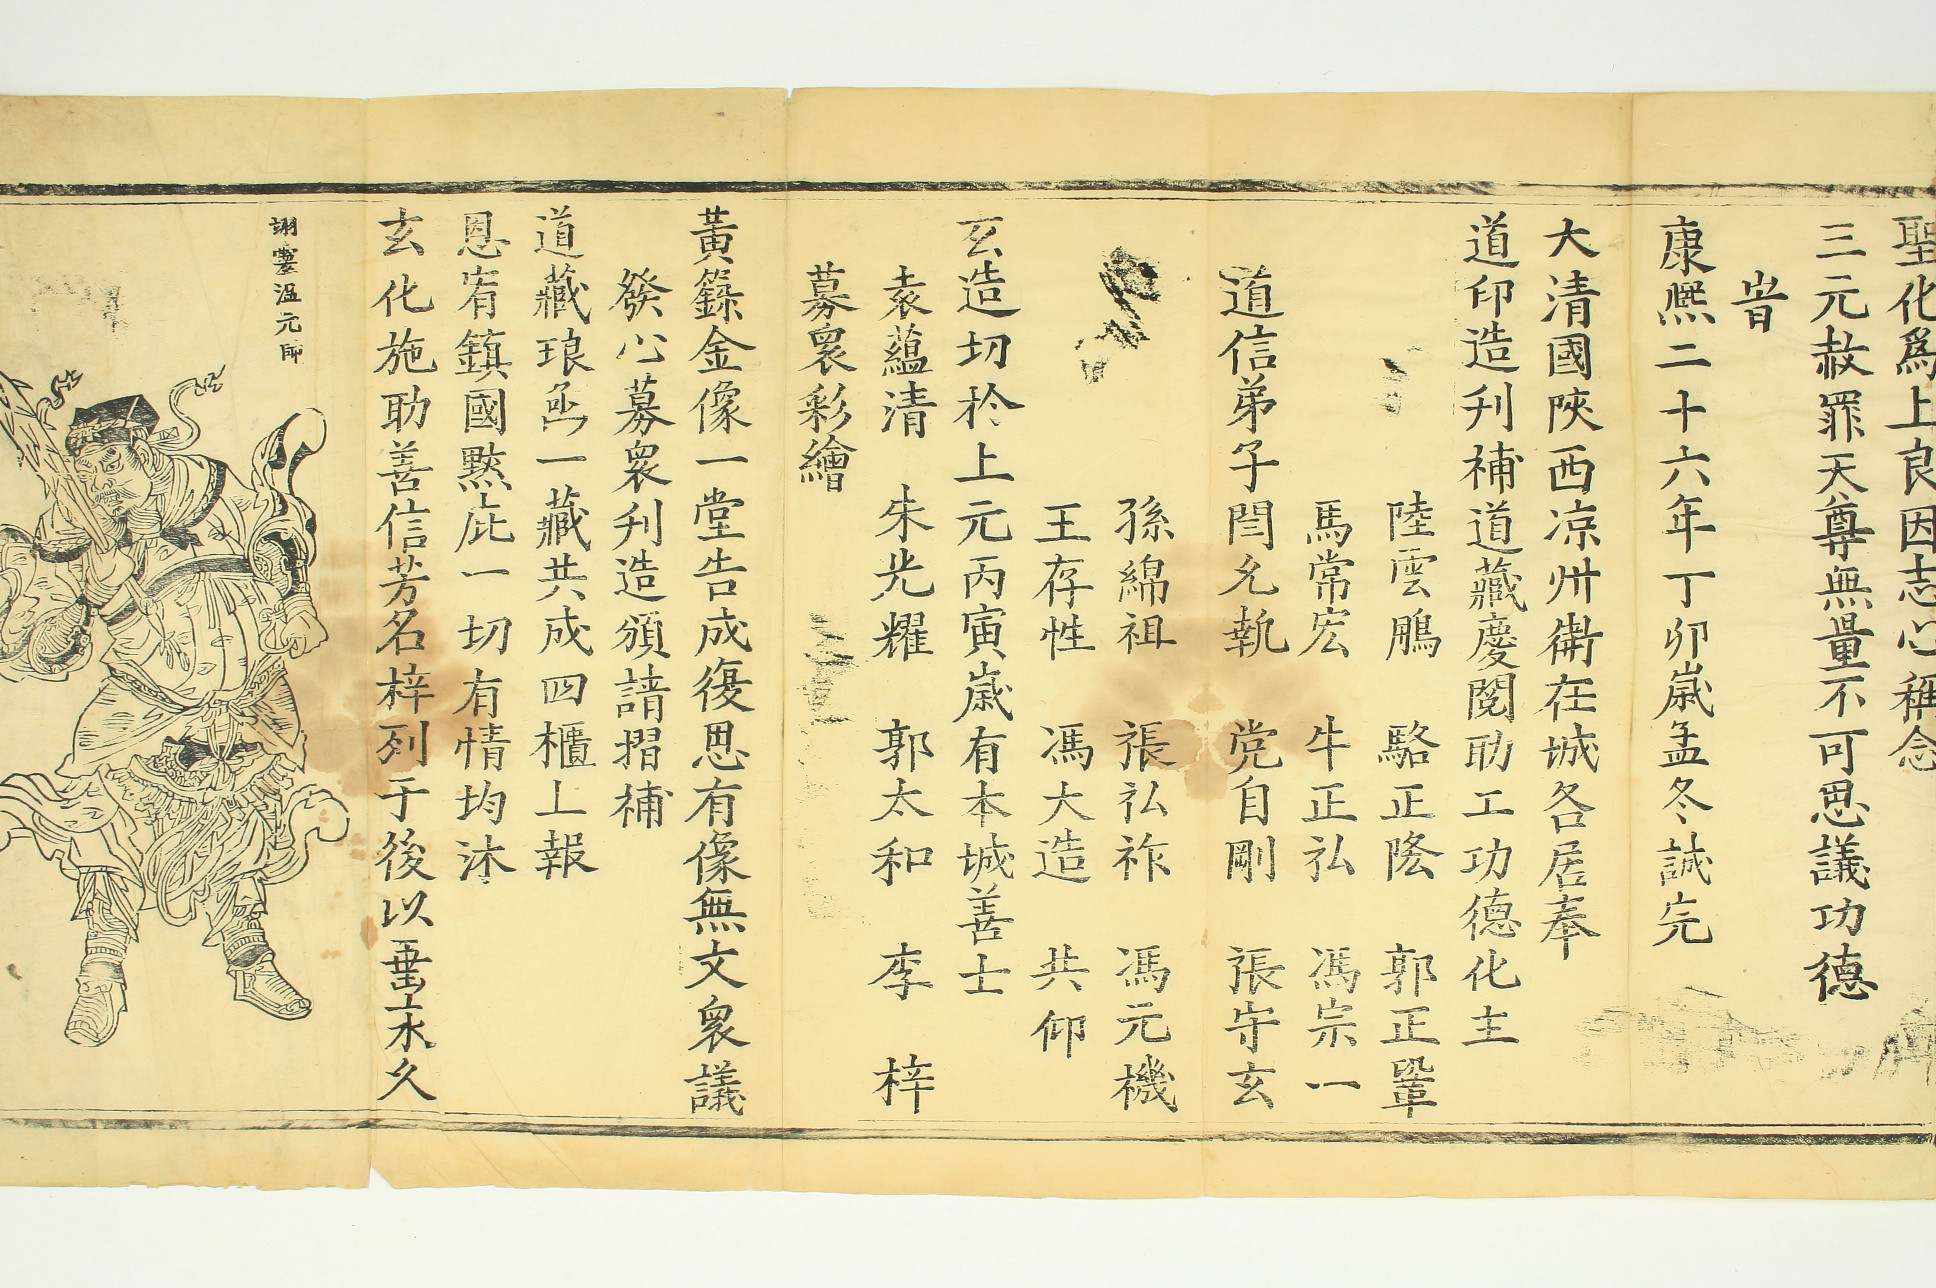 聖化為上良因志心稱念
三元赦罪天尊無量不可思議功德
旹
康熈二十六年丁卯歲孟冬誠完
大清國陝西凉州衛在城各居奉
道印造刋補道藏慶閱助工功德化主
陸雲鵬 駱正隂 郭正鞏
馬常宏 牛正弘 馮宗一
道信弟子閆允執 党自剛 張守玄
孫綿祖 張弘祚 馮元機
王存性 馮大造 共仰
玄造切扵上元丙寅歲有本城善士
袁蘊清 朱光耀 郭太和 李梓
募眾彩繪
黃籙金像一堂告成復思有像無文眾議
發心募眾刋造頒請摺補
道藏琅凾一藏共成四櫃上報
恩宥鎮國黙庇一切有情均沐
玄化施助善信芳名梓列于後以垂永久
翊靈溫元帥